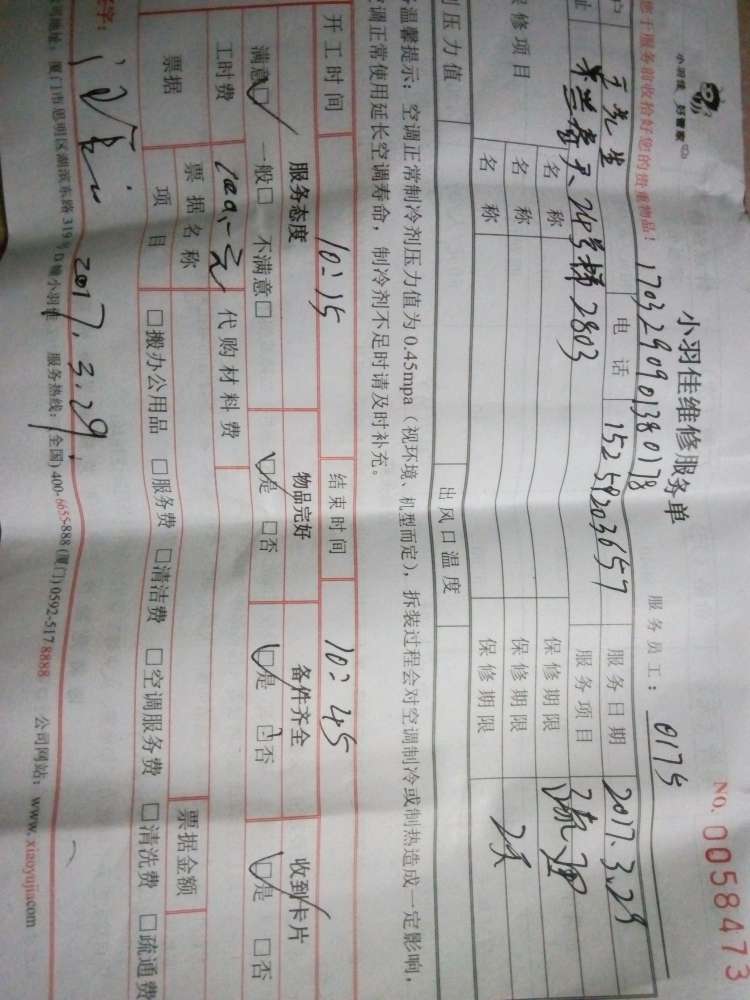 小羽佳 好管家
您于服务前收拾好您的贵重物品!
小羽佳维修服务单
NO. 0058473
1703290901380178
服务员工: 0175
户 王先生 电话 15259203657 服务日期 2017.3.29
址 24号梯2803 服务项目
修项目 名称 保修期限
名称 保修期限 2天
名称 保修期限
剂压力值 出风口温度
温馨提示: 空调正常制冷剂压力值为0.45mpa(视环境、机型而定), 拆装过程会对空调制冷或制热造成一定影响,
调正常使用延长空调寿命, 制冷剂不足时请及时补充。
开工时间 10:15 结束时间 10:45
服务态度 物品完好 备件齐全 收到卡片
满意□ 一般□ 不满意□ □是 □否 □是 □否 □是 □否
工时费 100.-元 代购材料费
票据 票据名称 票据金额
项目 □搬办公用品 □服务费 □清洁费 □空调服务费 □清洗费 □疏通费
字: 2017.3.29.
司地址: 厦门市思明区湖滨东路319号D幢小羽佳 服务热线: (全国)400-6655-888 (厦门)0592-5178888 公司网站: www.xiaoyujia.com